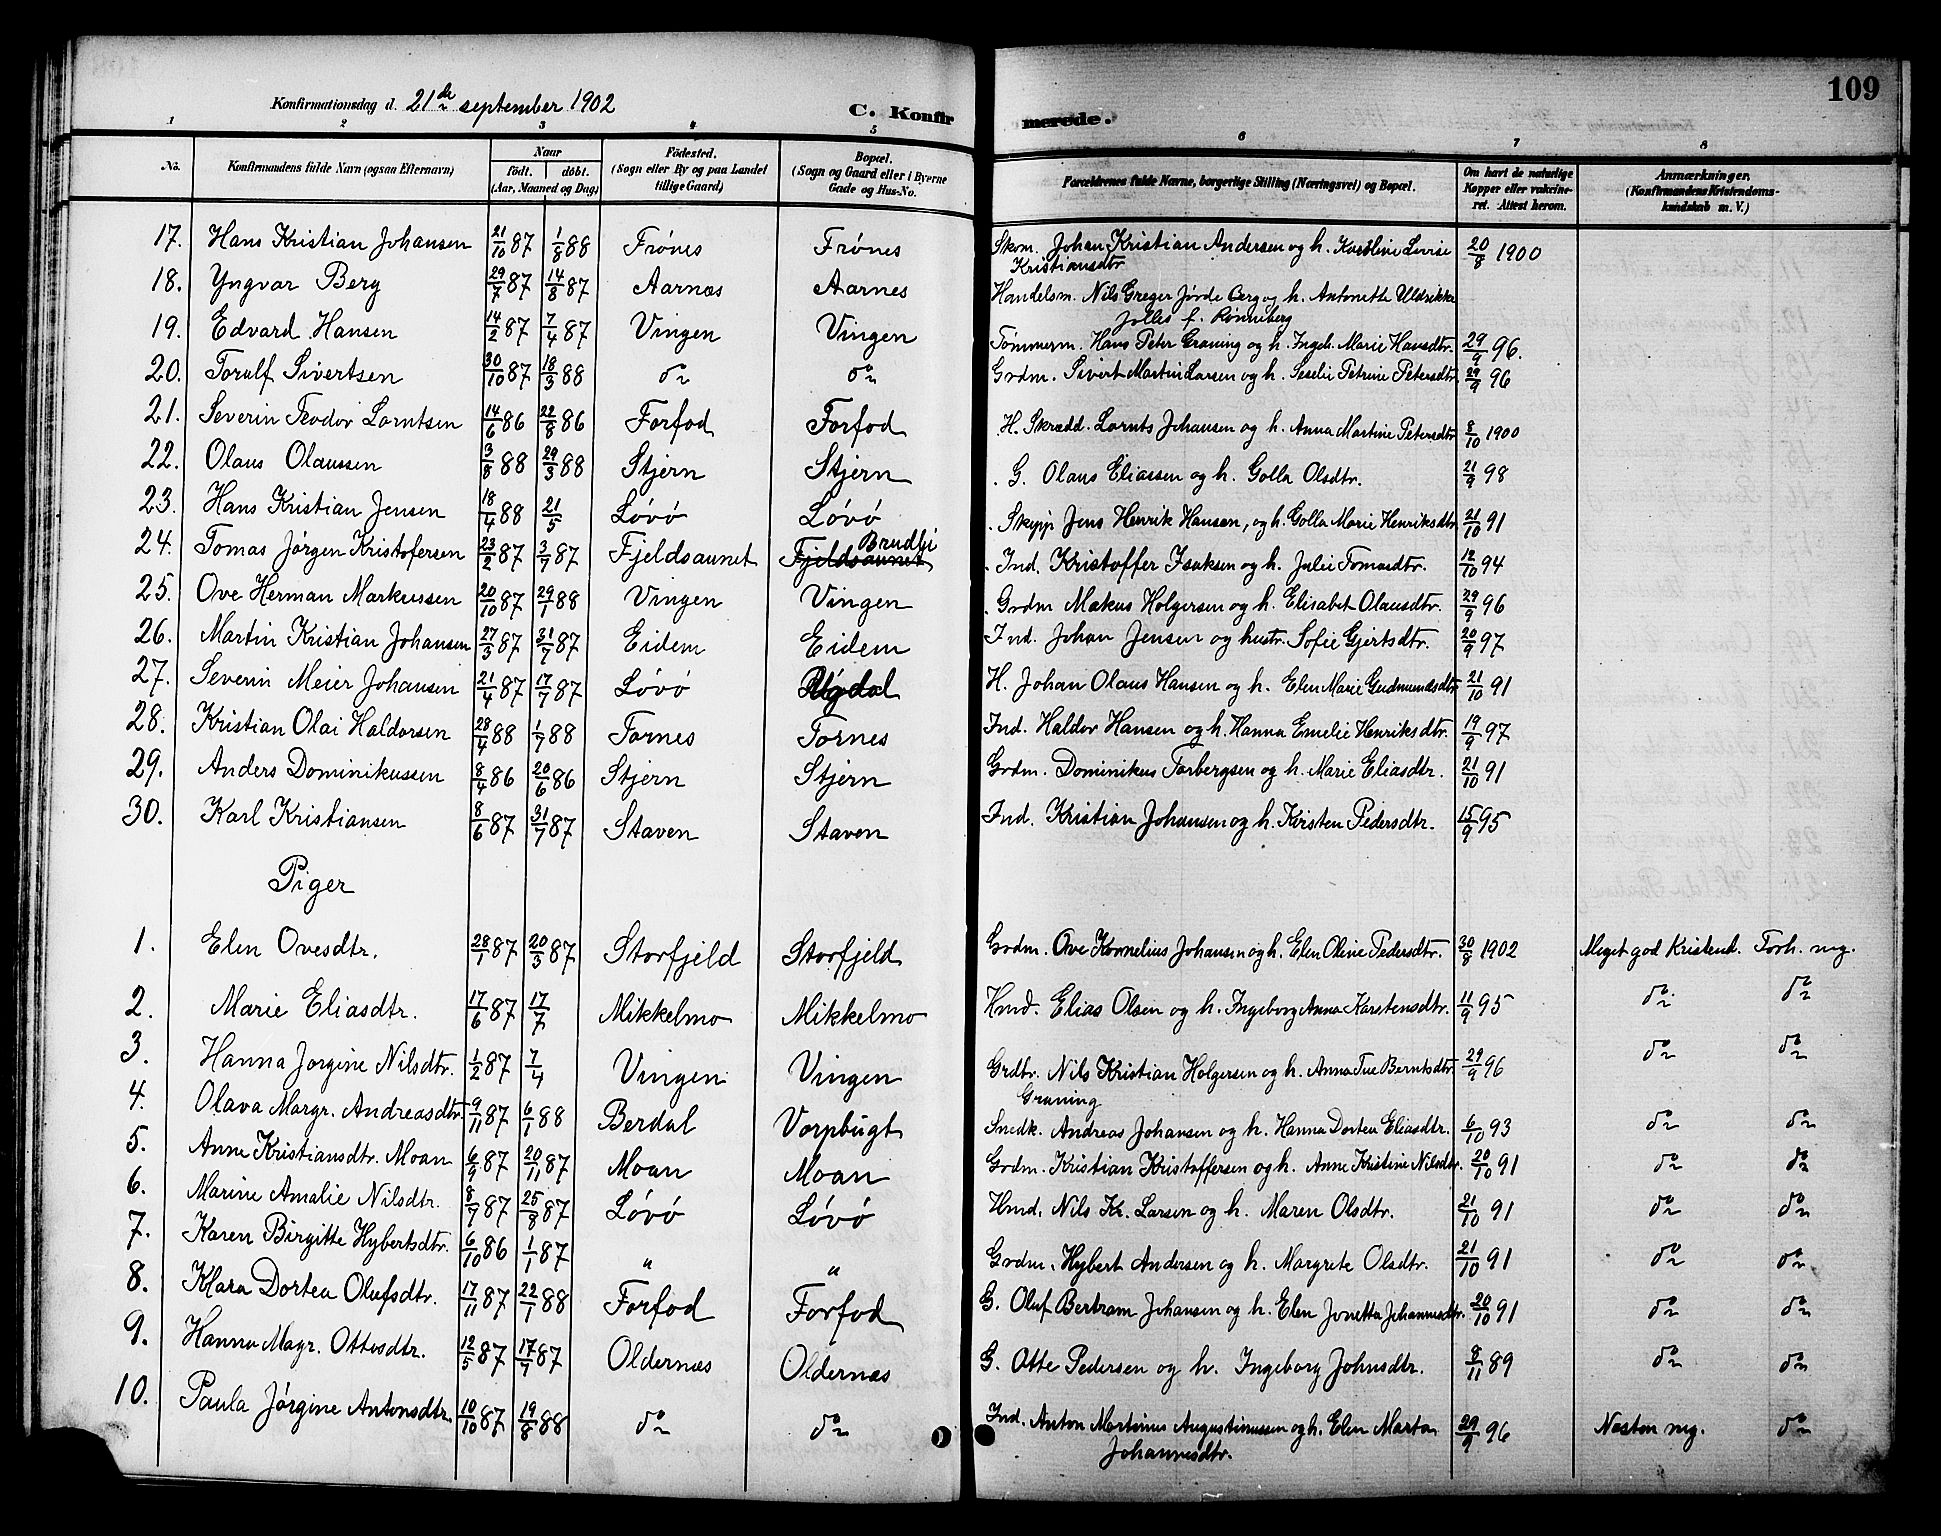 109
Konfirmationsdag d. 21de september 1902
C. Konfirmerede.
1 2 3 4 5 6 7 8
No. Konfirmandens fulde Navn (ogsaa Efternavn) Naar födt. döbt. (Aar, Maaned og Dag) Födested. (Sogn eller By og paa Landet tillige Gaard) Bopæl. (Sogn og Gaard eller i Byerne Gade og Hus-No. Forældrenes fulde Navne, borgerlige Stilling (Næringsvei) og Bopæl. Om havt de naturlige Kopper eller vakcineret. Attest herom. Anmærkninger. (Konfirmandens Kristendomskundskab m. V.)
17. Hans Kristian Johansen 21/10 87 1/8 88 Frönes Frönes Skom. Johan Kristian Andersen og h. Karoline Lovise Kristiansdtr 20/8 1900
18. Yngvar Berg 29/7 87 14/8 87 Aarnæs Aarnes Handelsm. Nils Greger Jörde Berg og h. Antonette Uldrikke Jolles f. Rönneberg
19. Edvard Hansen 14/2 87 7/4 87 Vingen Vingen Tömmerm. Hans Peter Graning og h. Ingeb. Marie Hansdtr. 29/9 96.
20. Toralf Sivertsen 30/10 87 18/3 88 do do Grdm. Sivert Martin Larsen og h. Seselie Petrine Petersdtr 29/9 96
21. Severin Teodor Lorntsen 14/6 86 22/8 86 Forfod Forfod H. Skrædd. Lornts Johansen og h. Anna Martine Petersdtr 8/10 1900
22. Olaus Olaussen 3/8 88 29/3 88 Stjern Stjern G. Olaus Eliassen og h. Golla Olsdtr. 21/9 98
23. Hans Kristian Jensen 18/4 88 21/5 Lövö Lövö Skipp Jens Henrik Hansen, og h. Golla Marie Henriksdtr 21/10 91
24. Tomas Jörgen Kristofersen 23/2 87 3/7 87 Fjeldsaunet Fjeldsaunet Brudli Ind. Kristoffer Isaksen og h. Julie Tomasdtr. 12/10 94
25. Ove Herman Markussen 20/10 87 29/1 88 Vingen Vingen Grdm Makus Holgersen og h. Elisabet Olausdtr. 29/9 96
26. Martin Kristian Johansen 27/3 87 31/7 87 Eidem Eidem Ind. Johan Jensen og hustr. Sofie Gjertsdtr. 20/9 97
27. Severin Meier Johansen 21/4 87 17/7 87 Lövö H. Johan Olaus Hansen og h. Elen Marie Gudmundsdtr 21/10 91
28. Kristian Olai Haldorsen 28/4 88 1/7 88 Tornes Tornes Ind. Haldor Hansen og h. Hanna Emelie Henriksdtr. 19/9 97
29. Anders Dominikussen 8/4 86 20/6 86 Stjern Stjern Grdm. Dominikus Torbergsen og h. Marie Eliasdtr. 21/10 91
30. Karl Kristiansen 8/6 87 31/7 87 Staven Staven Ind. Kristian Johansen og h. Kirsten Pedersdtr. 15/9 95
Piger
1. Elen Ovesdtr. 28/1 87 20/3 87 Storfjeld Storfjeld Grdm. Ove Kornelius Johansen og h. Elen Oline Pedersdtr. 30/8 1902 Meget god Kristend. Forh. mg.
2. Marie Eliasdtr. 17/6 87 17/7 Mikkelmo Mikkelmo Hmd. Elias Olsen og h. Ingeborg Anna Karstensdtr. 11/9 95 do do
3. Hanna Jorgine Nilsdtr. 1/2 87 7/4 Vingen Vingen Grdbr. Nils Kristian Holgersen og h. Anna Tue Berntsdtr. Graning 29/9 96 do do
4. Olava Margr. Andreasdtr 9/11 87 6/1 88 Berdal Vorpbugt Snedk. Andreas Johansen og h. Hanna Dortea Eliasdtr. 6/10 93 do do
5. Anne Kristiansdtr. Moan 6/9 87 20/11 87 Moan Moan Grdm. Kristian Kristoffersen og h. Anne Kristine Nilsdtr. 20/10 91 do do
6. Marine Amalie Nilsdtr. 8/7 87 25/8 87 Lövö Lövö Hmd. Nils Kr. Larsen og h. Maren Olsdtr. 21/10 91 do do
7. Karen Birgitte Hybertsdtr. 6/10 86 1/1 87 " " Grdm. Hybert Andersen og h. Margrete Olsdtr. 21/10 91 do do
8. Klara Dortea Olufsdtr. 17/11 87 22/1 88 Forfod Forfod G. Oluf Bertram Johansen og h. Elen Jonetta Johannesdtr. 20/10 91 do do
9. Hanna Magr. Ottesdtr. 12/5 87 17/7 87 Oldernæs Oldernæs G. Otte Pedersen og h. Ingeborg Johnsdtr. 8/11 89 do do
10. Paula Jörgine Antonsdtr. 10/10 87 19/8 88 do do Ind. Anton Martinus Augustinussen og h. Elen Marta Johannesdtr. 29/9 96 Næsten mg. do